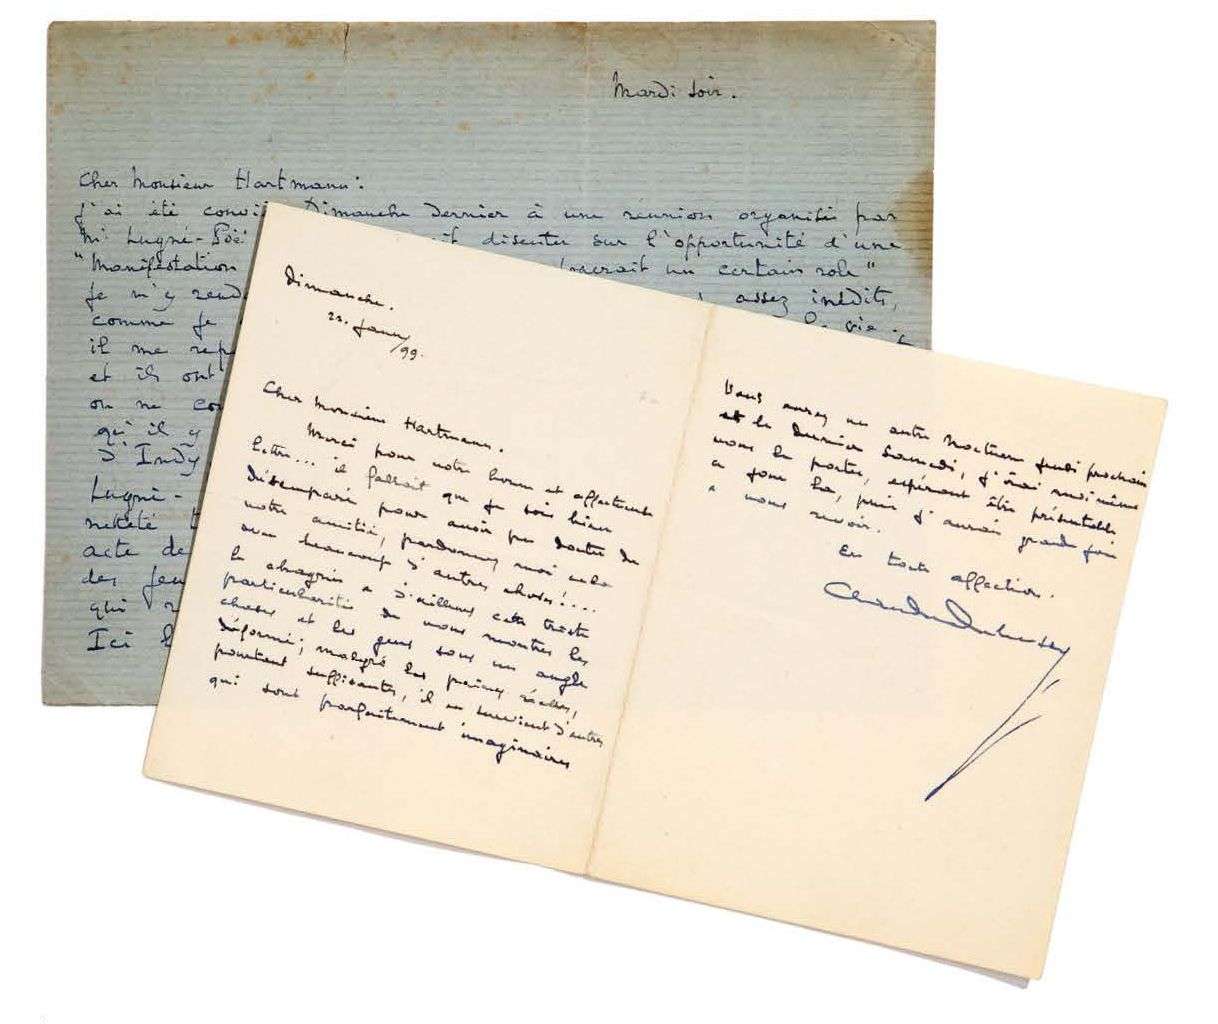 Mardi soir.
Cher Monsieur Hartmann:
J'ai été convié Dimanche dernier à une réunion organisée par
Mr Lugné-Poë discuter sur l'opportunité d'une
"Manifestation un certain role"
Je m'y assez inédits,
comme je la vie.
il me
et ils ont
on ne
qu'il y
d'Indy
Lugné-
netteté
acte de
des
qui
Ici
Dimanche.
Janv/99.
Cher Monsieur Hartmann.
Merci pour votre bonne et affectueuse
lettre... il fallait que je sois bien
désemparé pour avoir pu douter de
votre amitié, pardonnez moi cela
avec beaucoup d'autres choses!....
le chagrin a d'ailleurs cette triste
particularité de nous montrer les
choses et les gens sous un angle
déformé; malgré les peines réelles,
pourtant suffisantes, il en survient d'autres
qui sont parfaitement imaginaires
Vous aurez un autre Nocturne Jeudi prochain
et le dernier Samedi, j'irai moi même
vous le porter, espérant être présentable
ce jour là, puis j'aurai grand joie
à vous revoir.
En toute affection.
Claude Debussy